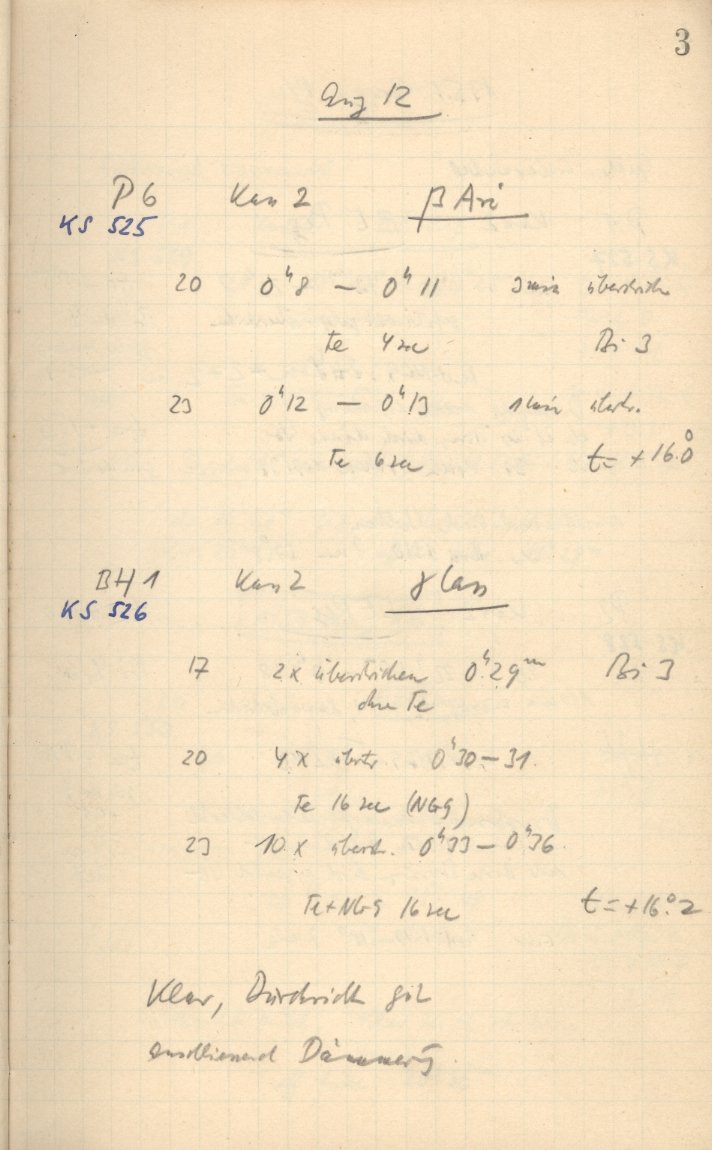 3
Aug 12
P6 Kam 2 β Ari
KS 525
20 0ʰ8 — 0ʰ11 3 min überstrich
Te 4 sec Bi 3
23 0ʰ12 — 0ʰ13 1 min überstr.
Te 6 sec t= +16.°0
BH 1 Kam 2 γ Cass
KS 526
17 2x überstrichen 0ʰ29ᵐ Bi 3
ohne Te
20 4x überstr. 0ʰ30—31.
Te 16 sec (NG9)
23 10x überstr. 0ʰ33—0ʰ36
Te+NG9 16 sec t=+16.°2
Klar, Durchsicht gut
anschliessend Dämmerg.